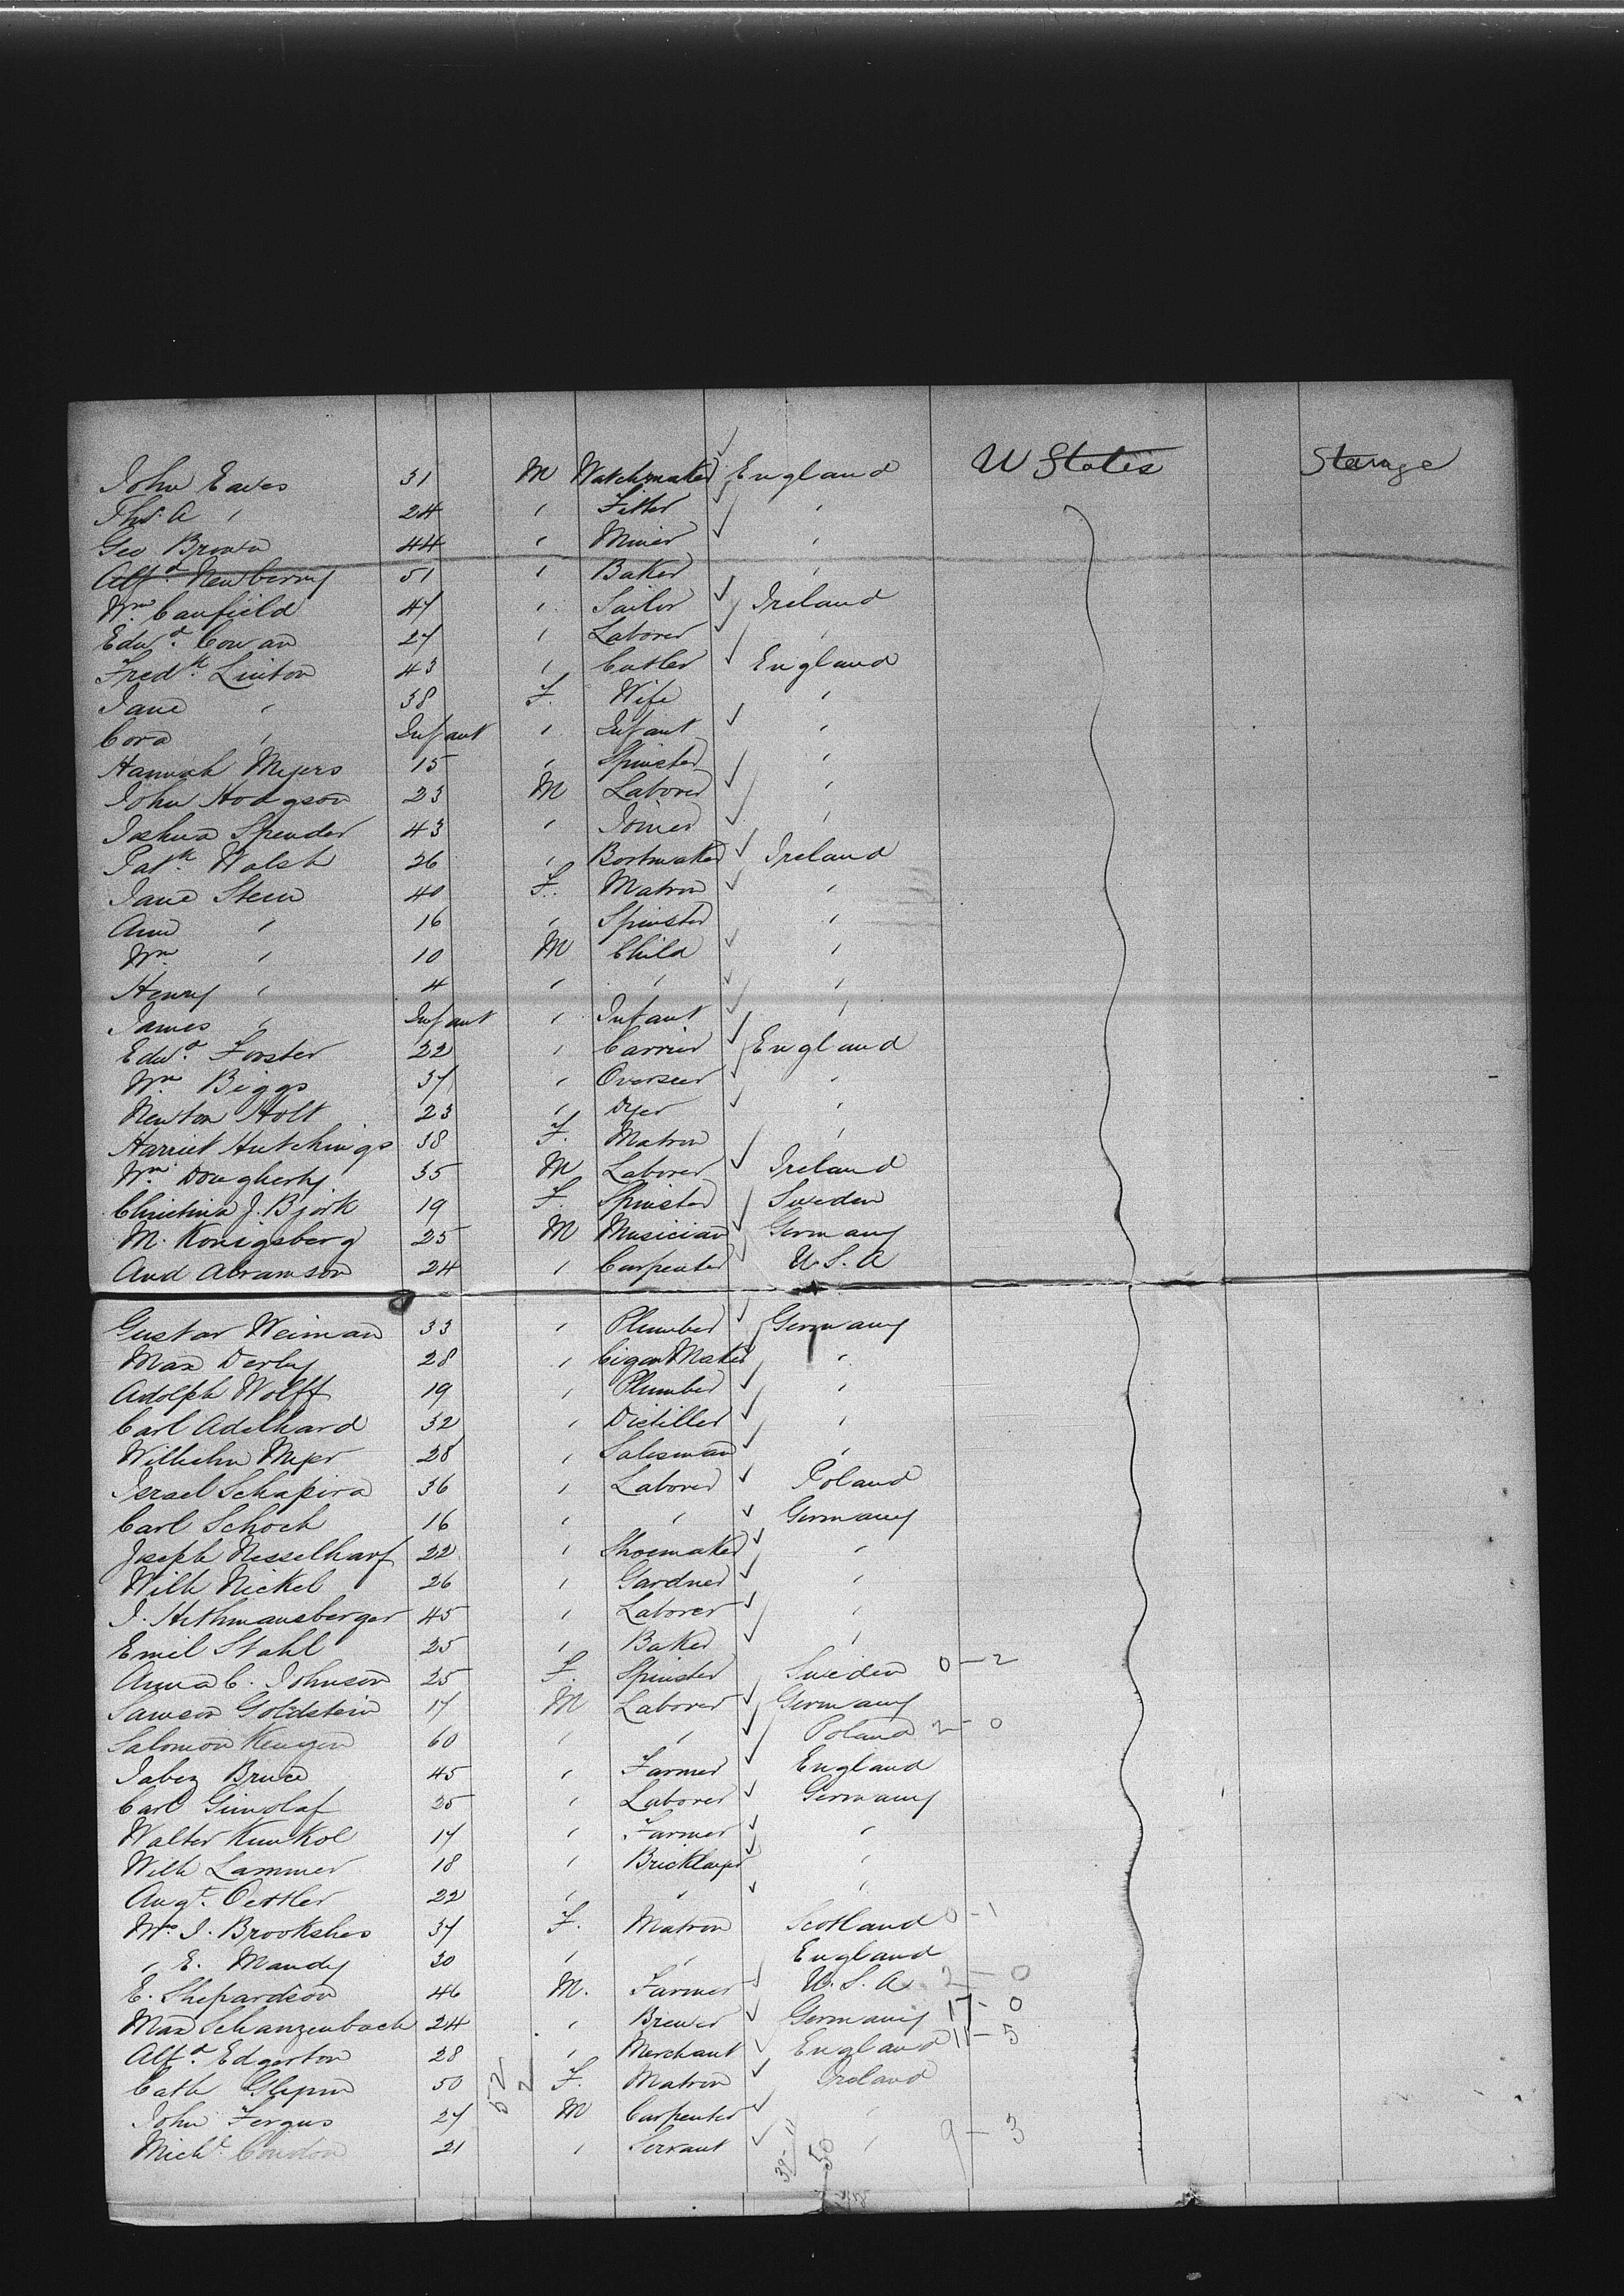 John Eaves 31 M Watchmaker England U States Steerage
Thos. A " 24 " Fitter "
Geo Brown 44 " Miner "
Alfd. Newberry 51 " Baker "
Wm. Canfield 47 " Sailor Ireland
Edwd. Cowan 27 " Laborer "
Fredk. Linton 43 " Cutler England
Jane " 38 F. Wife "
Cora " Infant " Infant "
Hannah Myers 15 " Spinster "
John Hodgson 23 M Laborer "
Joshua Spender 43 " Joiner "
Patk. Walsh 26 " Bootmaker Ireland
Jane Steen 40 F. Matron "
Ann " 16 " Spinster "
Wm " 10 M Child "
Henry " 4 " " "
James " Infant " Infant "
Edwd. Forster 22 " Carrier England
Wm. Biggs 37 " Overseer "
Newton Holt 23 " Dyer "
Harriet Hutchings 38 F. Matron "
Wm. Dougherty 35 M Laborer Ireland
Christina J. Bjork 19 F. Spinster Sweden
M. Konigsberg 25 M Musician Germany
And Abramson 24 " Carpenter U.S.A
Gustav Weiman 33 " Plumber Germany
Max Derby 28 " Cigar Maker "
Adolph Wolff 19 " Plumber "
Carl Adelhard 32 " Distiller "
Wilhelm Myer 28 " Salesman "
Israel Schapira 36 " Laborer Poland
Carl Schoch 16 " " Germany
Joseph Nesselharf 22 " Shoemaker "
Wilh Nickel 26 " Gardner "
J. Hithmansberger 45 " Laborer "
Emil Stahl 25 " Baker "
Anna C. Johnson 25 F. Spinster Sweden 0-2
Samson Goldstein 17 M Laborer Germany
Salomon 60 " " Poland 2-0
Jabez Bruce 45 " Farmer England
Carl 25 " Laborer Germany
Walter Kunkol 17 " Farmer "
Wilh Lammer 18 " Bricklayer "
Augt. Oertler 22 " " "
Mrs. J. Brookshes 37 F. Matron Scotland 0-1
" E. Mandy 30 " " England
E. Shepardson 46 M. Farmer U.S.A. 2-0
Max Schanzenbach 24 " Brewer Germany 17-0
Alfd. Edgerton 28 " Merchant England 11-5
Cath 50 F. Matron Ireland
John Fergus 27 M Carpenter " 9-3
Michl. Condon 21 " Servant "
52
2
39-11
50